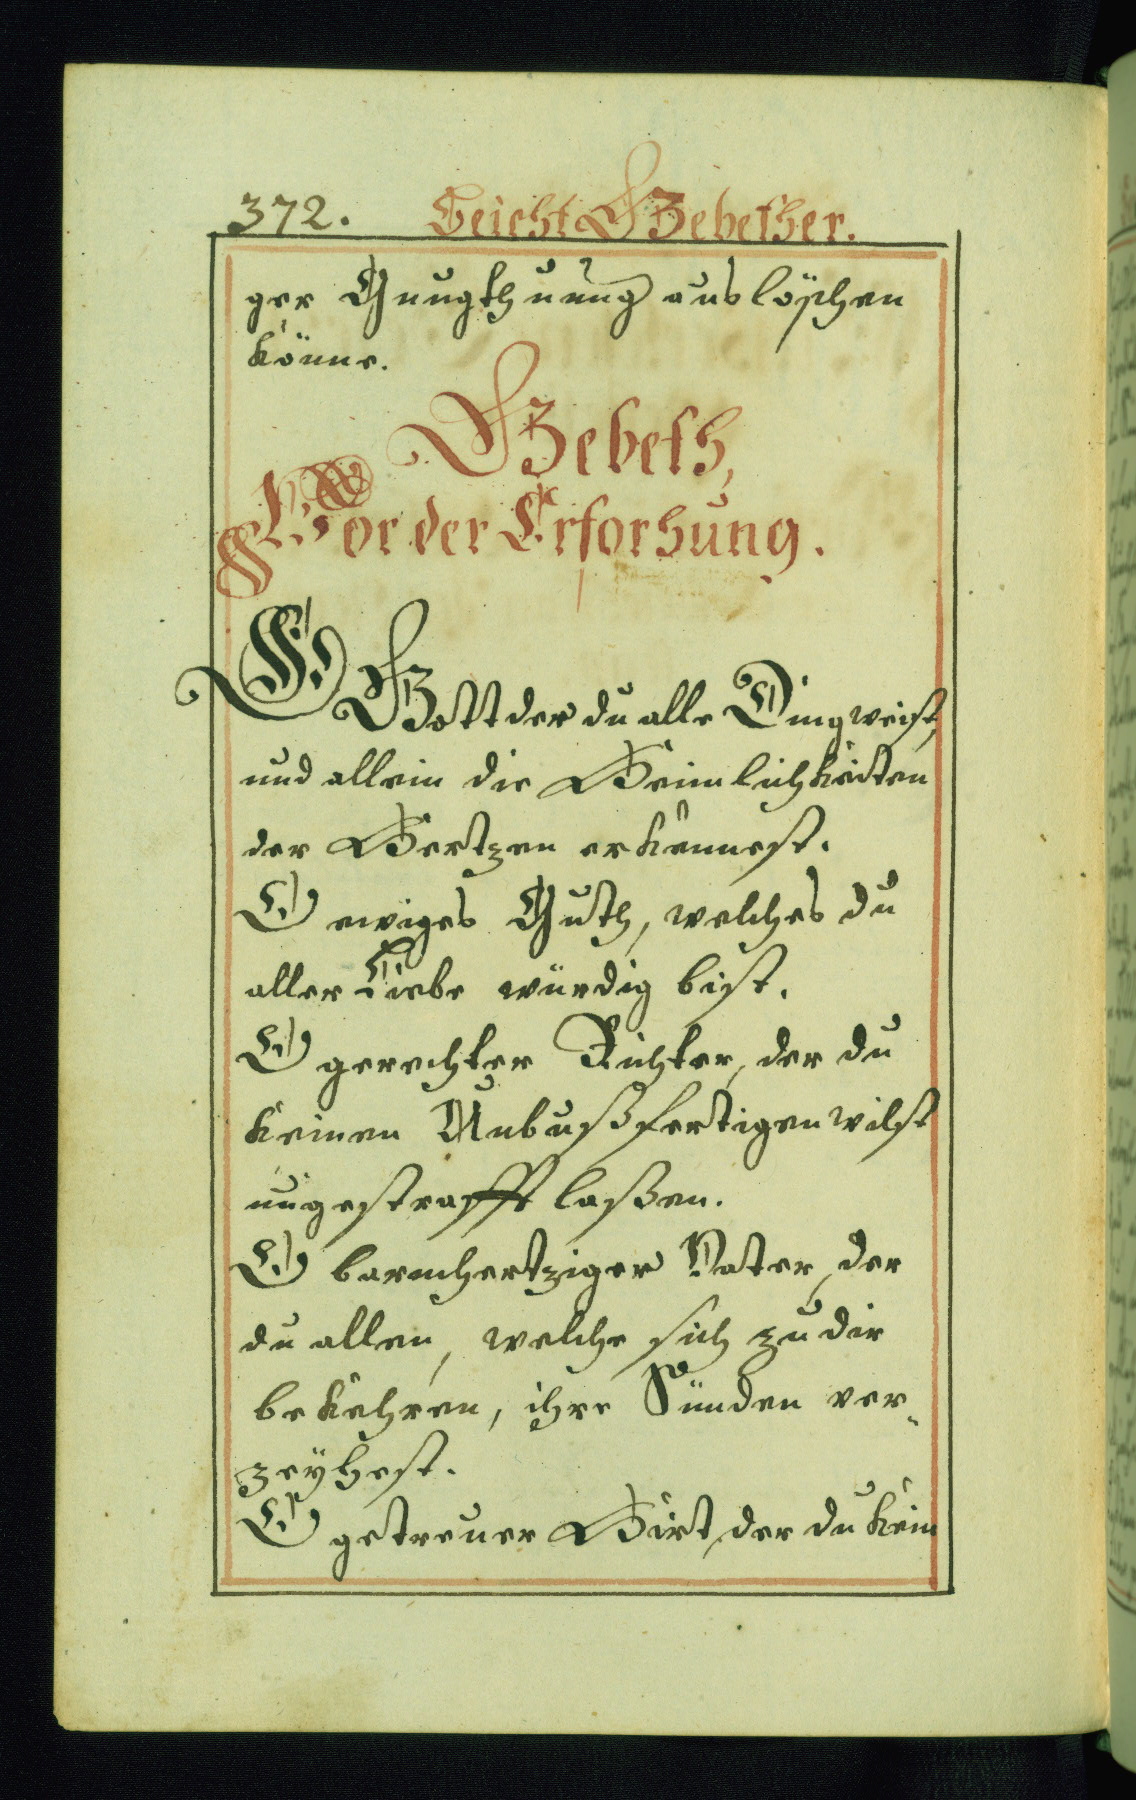 372. Beicht Gebether.
ger Gnugthuung auslöschen
könne.
Gebeth,
Vor der Erforshung.
O Gott der du alle Ding weist,
und allein die Heimlichkeiten
der Hertzen erkennest.
O ewiges Guth, welches du
aller Liebe würdig bist.
O gerechter Richter, der du
keinen Unbußfertigen wilst
ungestrafft laßen.
O barmhertziger Vater, der
du allen, welche sich zu dir
bekehren, ihre Sünden ver-
zeÿhest.
O getreuer Hirt, der du kein